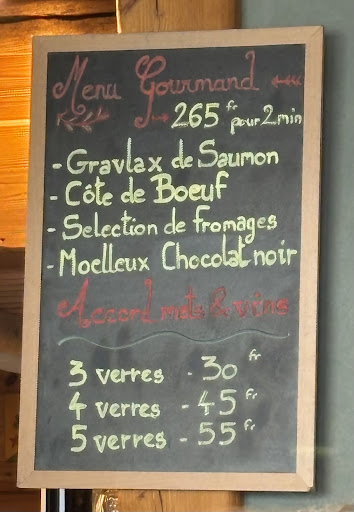 Menu Gourmand
265 fr pour 2 min
- Gravlax de Saumon
- Côte de Boeuf
- Selection de fromages
- Moelleux Chocolat noir
Accord mets & vins
3 verres - 30 fr
4 verres - 45 fr
5 verres - 55 fr